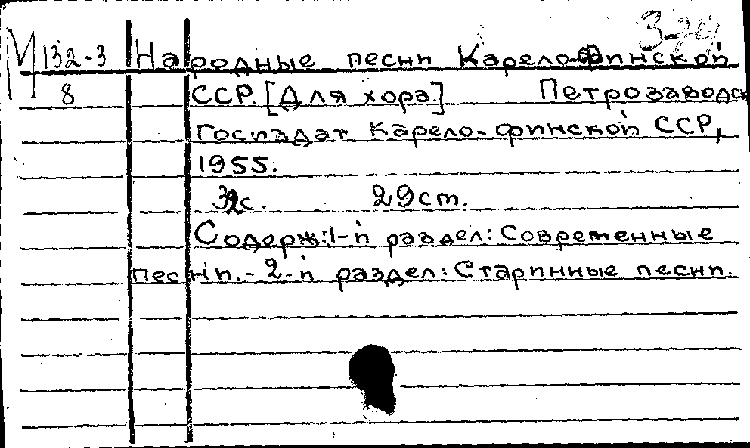 М 132-3 Народные песни Карело-Финской
8 ССР. [Для хора] Петрозаводск
Госиздат Карело-финской ССР,
1955.
32с. 29 см.
Содерж: 1-й раздел: Современные
песни. - 2-й раздел: Старинные песни.